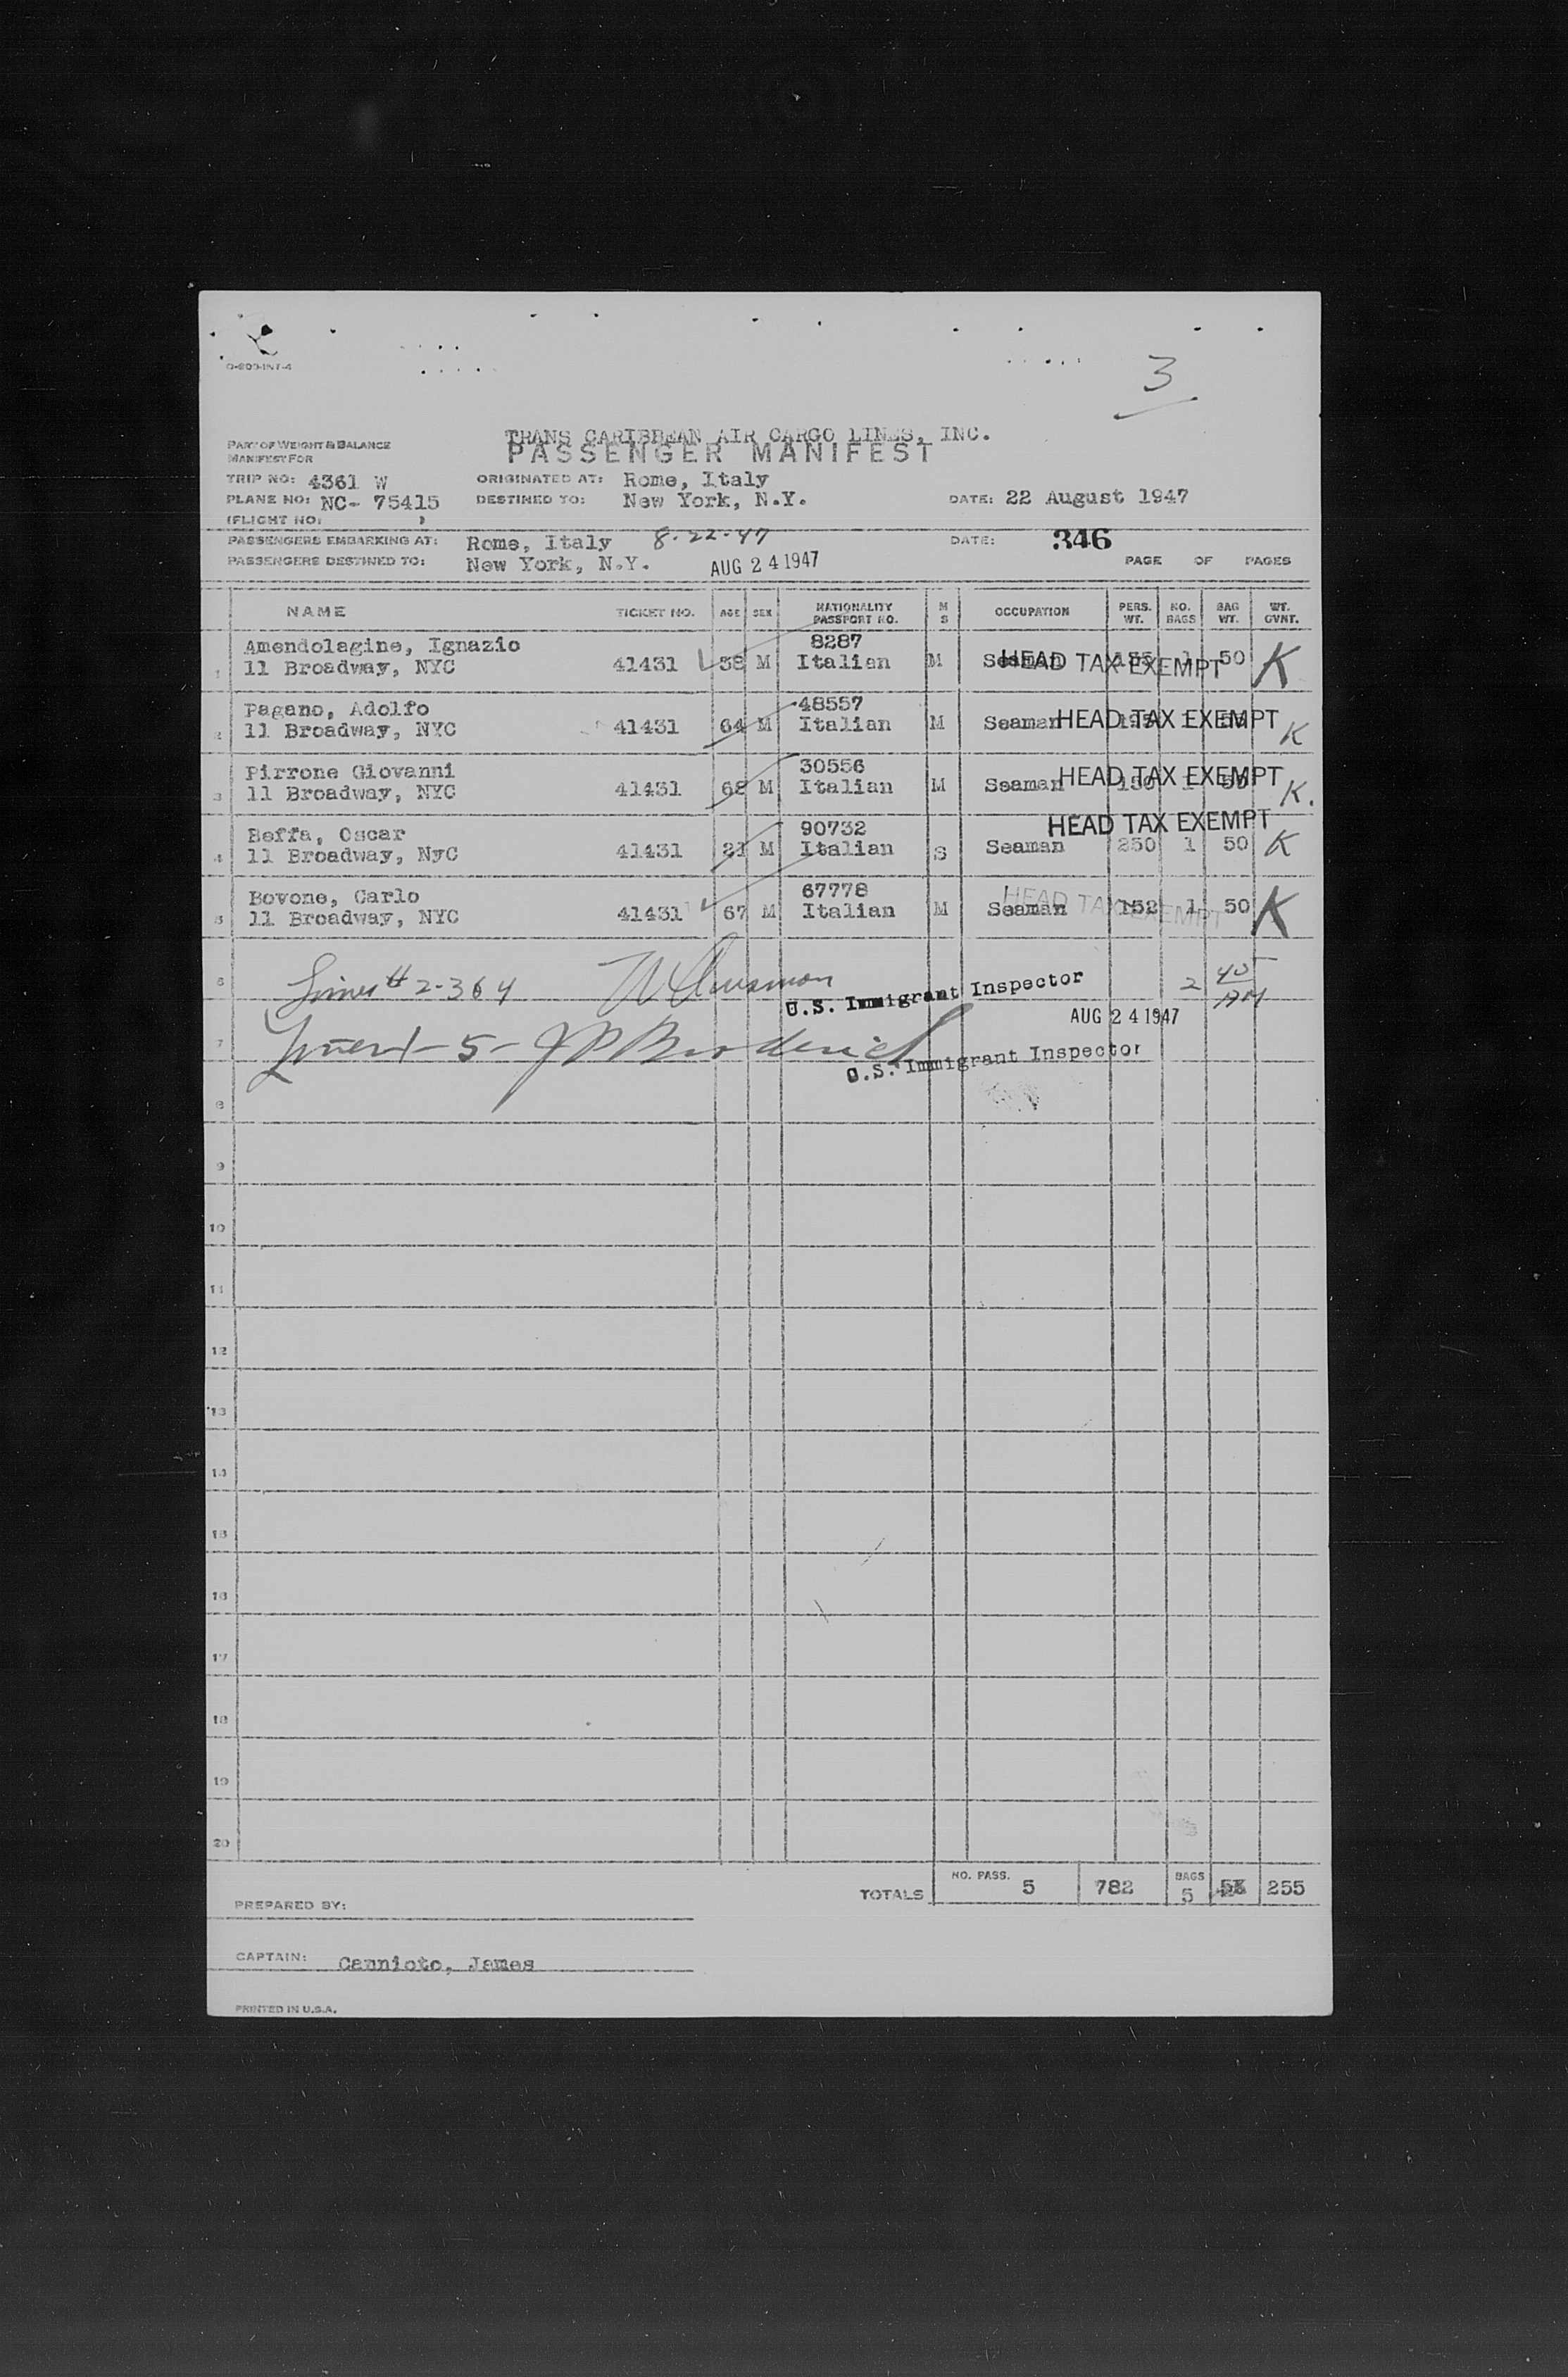 O-803-INT-4
3
TRANS CARIBBEAN AIR CARGO LINES, INC.
PASSENGER MANIFEST
PART OF WEIGHT & BALANCE
MANIFEST FOR
TRIP NO: 4361 W ORIGINATED AT: Rome, Italy
PLANE NO: NC- 75415 DESTINED TO: New York, N.Y. DATE: 22 August 1947
(FLIGHT NO: )
PASSENGERS EMBARKING AT: Rome, Italy 8-22-47 DATE: 346
PASSENGERS DESTINED TO: New York, N.Y. AUG 24 1947 PAGE OF PAGES
NAME TICKET NO. AGE SEX NATIONALITY PASSPORT NO. M S OCCUPATION PERS. WT. NO. BAGS BAG WT. WT. GVNT.
Amendolagine, Ignazio 8287
1 11 Broadway, NYC 41431 38 M Italian M Seaman HEAD TAX EXEMPT 1 50 K
Pagano, Adolfo 48557
2 11 Broadway, NYC 41431 64 M Italian M Seaman HEAD TAX EXEMPT 1 K
Pirrone Giovanni 30556
3 11 Broadway, NYC 41431 68 M Italian M Seaman HEAD TAX EXEMPT 150 1 K.
Beffa, Oscar 90732 HEAD TAX EXEMPT
4 11 Broadway, NyC 41431 21 M Italian S Seaman 250 1 50 K
Bovone, Carlo 67778 HEAD TAX EXEMPT
5 11 Broadway, NYC 41431 67 M Italian M Seaman 152 1 50 K
6 Lines # 2-3 & 4 U.S. Immigrant Inspector 2 45 AM
AUG 24 1947
7 5- J P Broderick U.S. Immigrant Inspector
8
9
10
11
12
13
14
15
16
17
18
19
20
TOTALS NO. PASS. 5 782 BAGS 5 255
PREPARED BY:
CAPTAIN: Cannioto, James
PRINTED IN U.S.A.